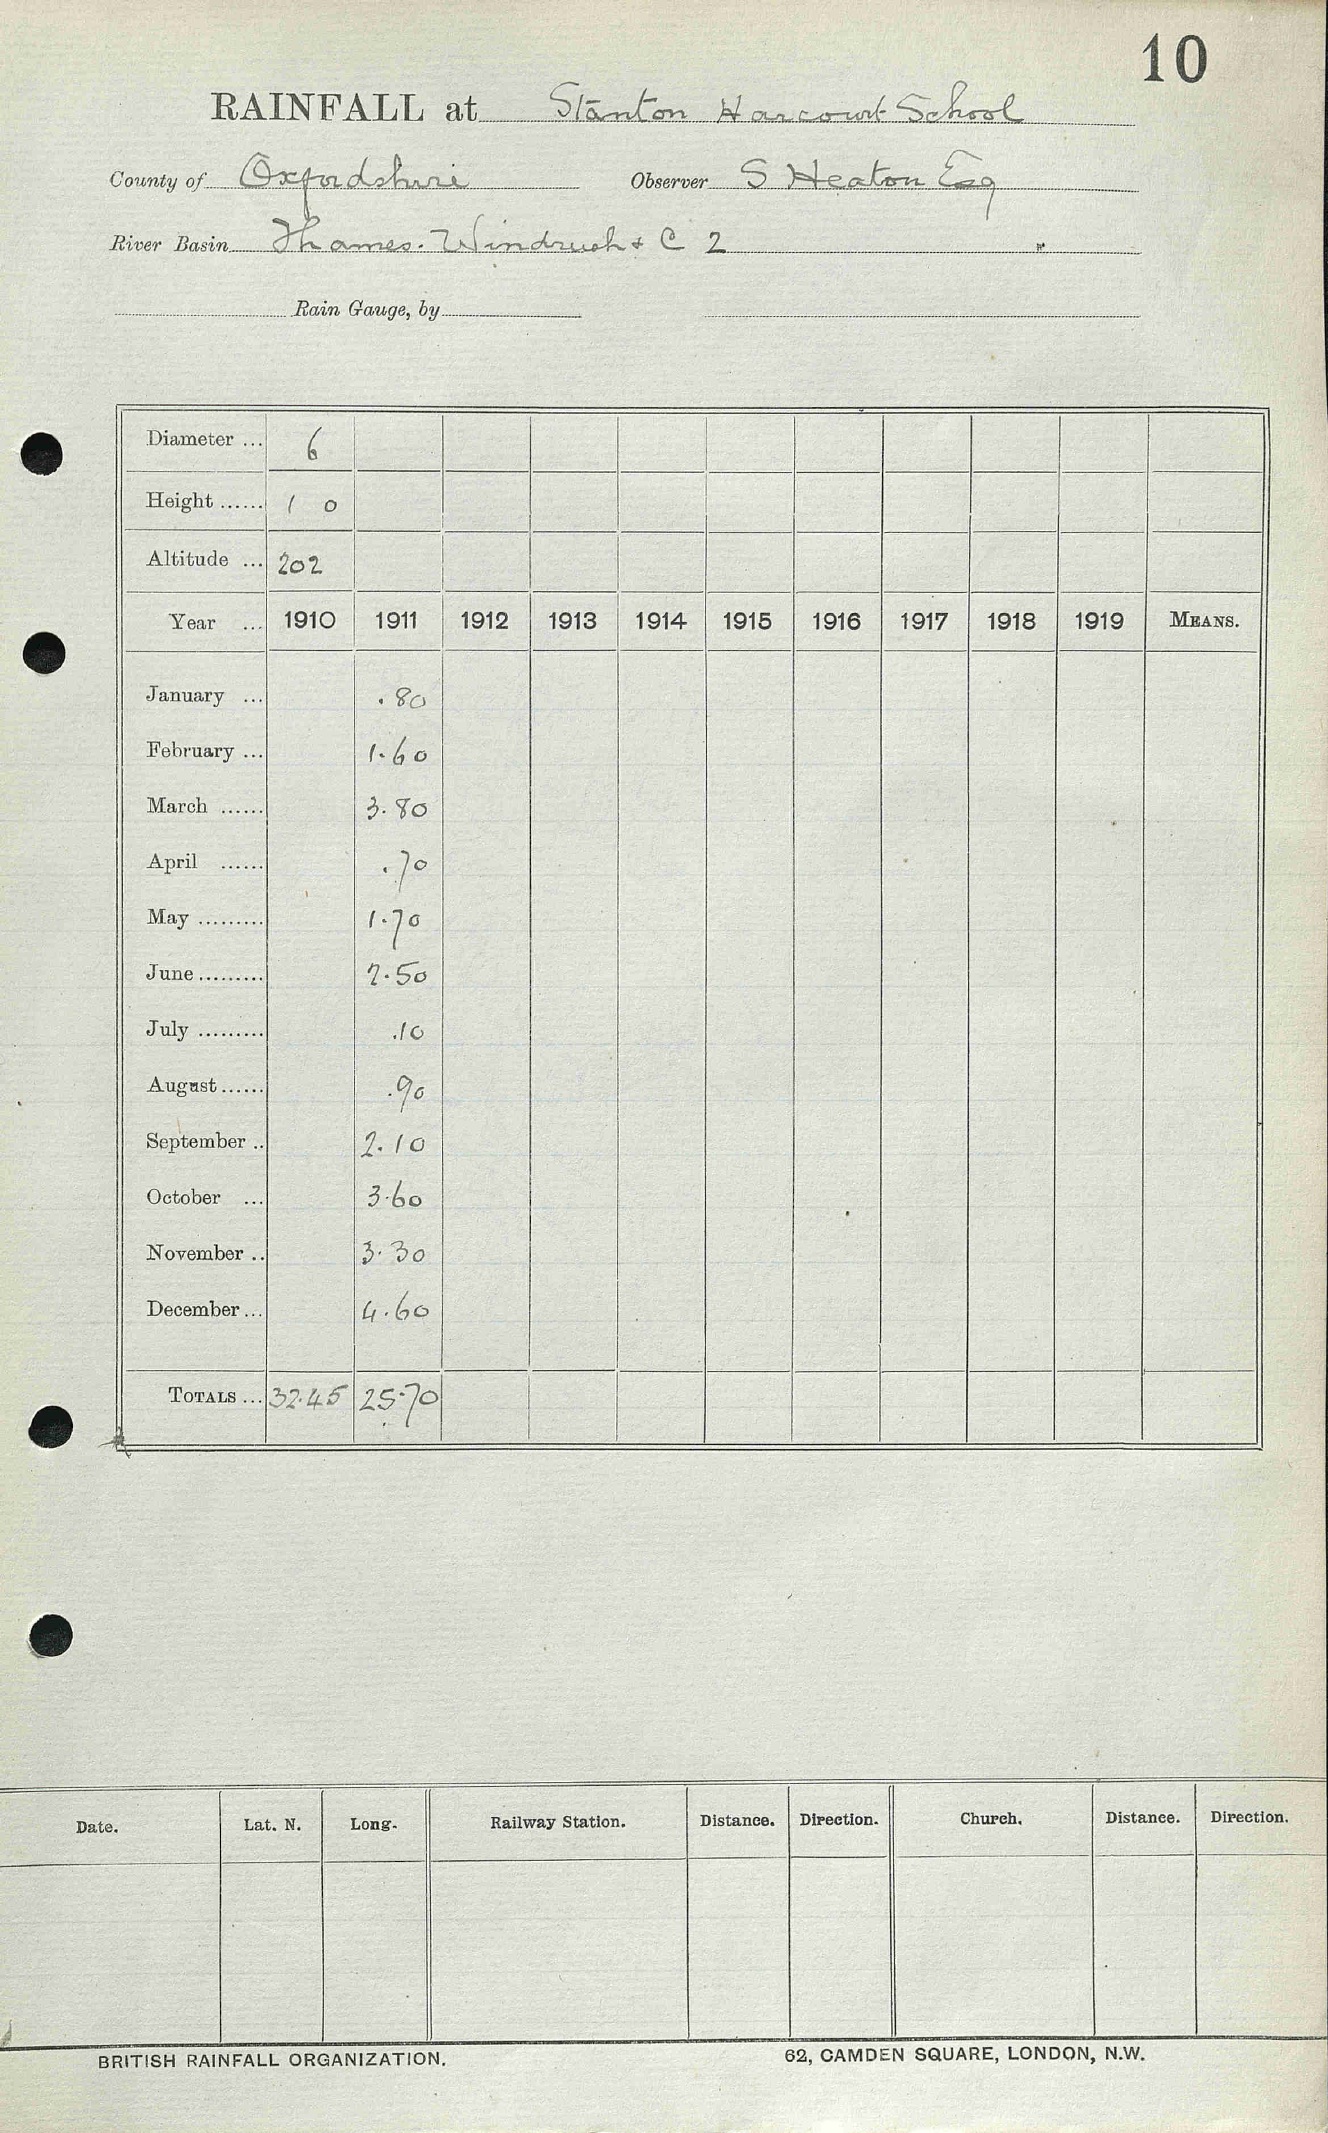 10
RAINFALL at Stanton Harcourt School
County of Oxfordshire Observer S Heaton Esq
River Basin Thames. Windrush + C 2
Rain Gauge, by
Diameter ... 6
Height ...... 1 0
Altitude ... 202
Year ... 1910 1911 1912 1913 1914 1915 1916 1917 1918 1919 MEANS.
January ... .80
February ... 1.60
March ...... 3.80
April ...... .70
May ......... 1.70
June ......... 2.50
July ......... .10
August ...... .90
September .. 2.10
October ... 3.60
November .. 3.30
December ... 4.60
TOTALS ... 32.45 25.70
Date. Lat. N. Long. Railway Station. Distance. Direction. Church. Distance. Direction.
BRITISH RAINFALL ORGANIZATION. 62, CAMDEN SQUARE, LONDON, N.W.